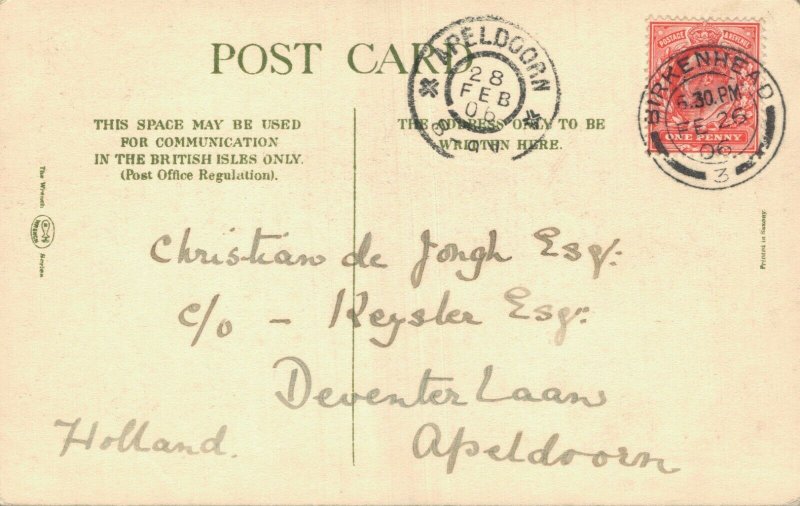 POST CARD
THIS SPACE MAY BE USED
FOR COMMUNICATION
IN THE BRITISH ISLES ONLY.
(Post Office Regulation).
THE ADDRESS ONLY TO BE
WRITTEN HERE.
APELDOORN
28
FEB
06
POSTAGE & REVENUE
ONE PENNY
BIRKENHEAD
6.30.PM
FE 26
06
3
The Wrench
Series
Printed in Saxony
Christian de Jongh Esq:
c/o - Keysler Esq:
Deventer Laan
Holland. Apeldoorn